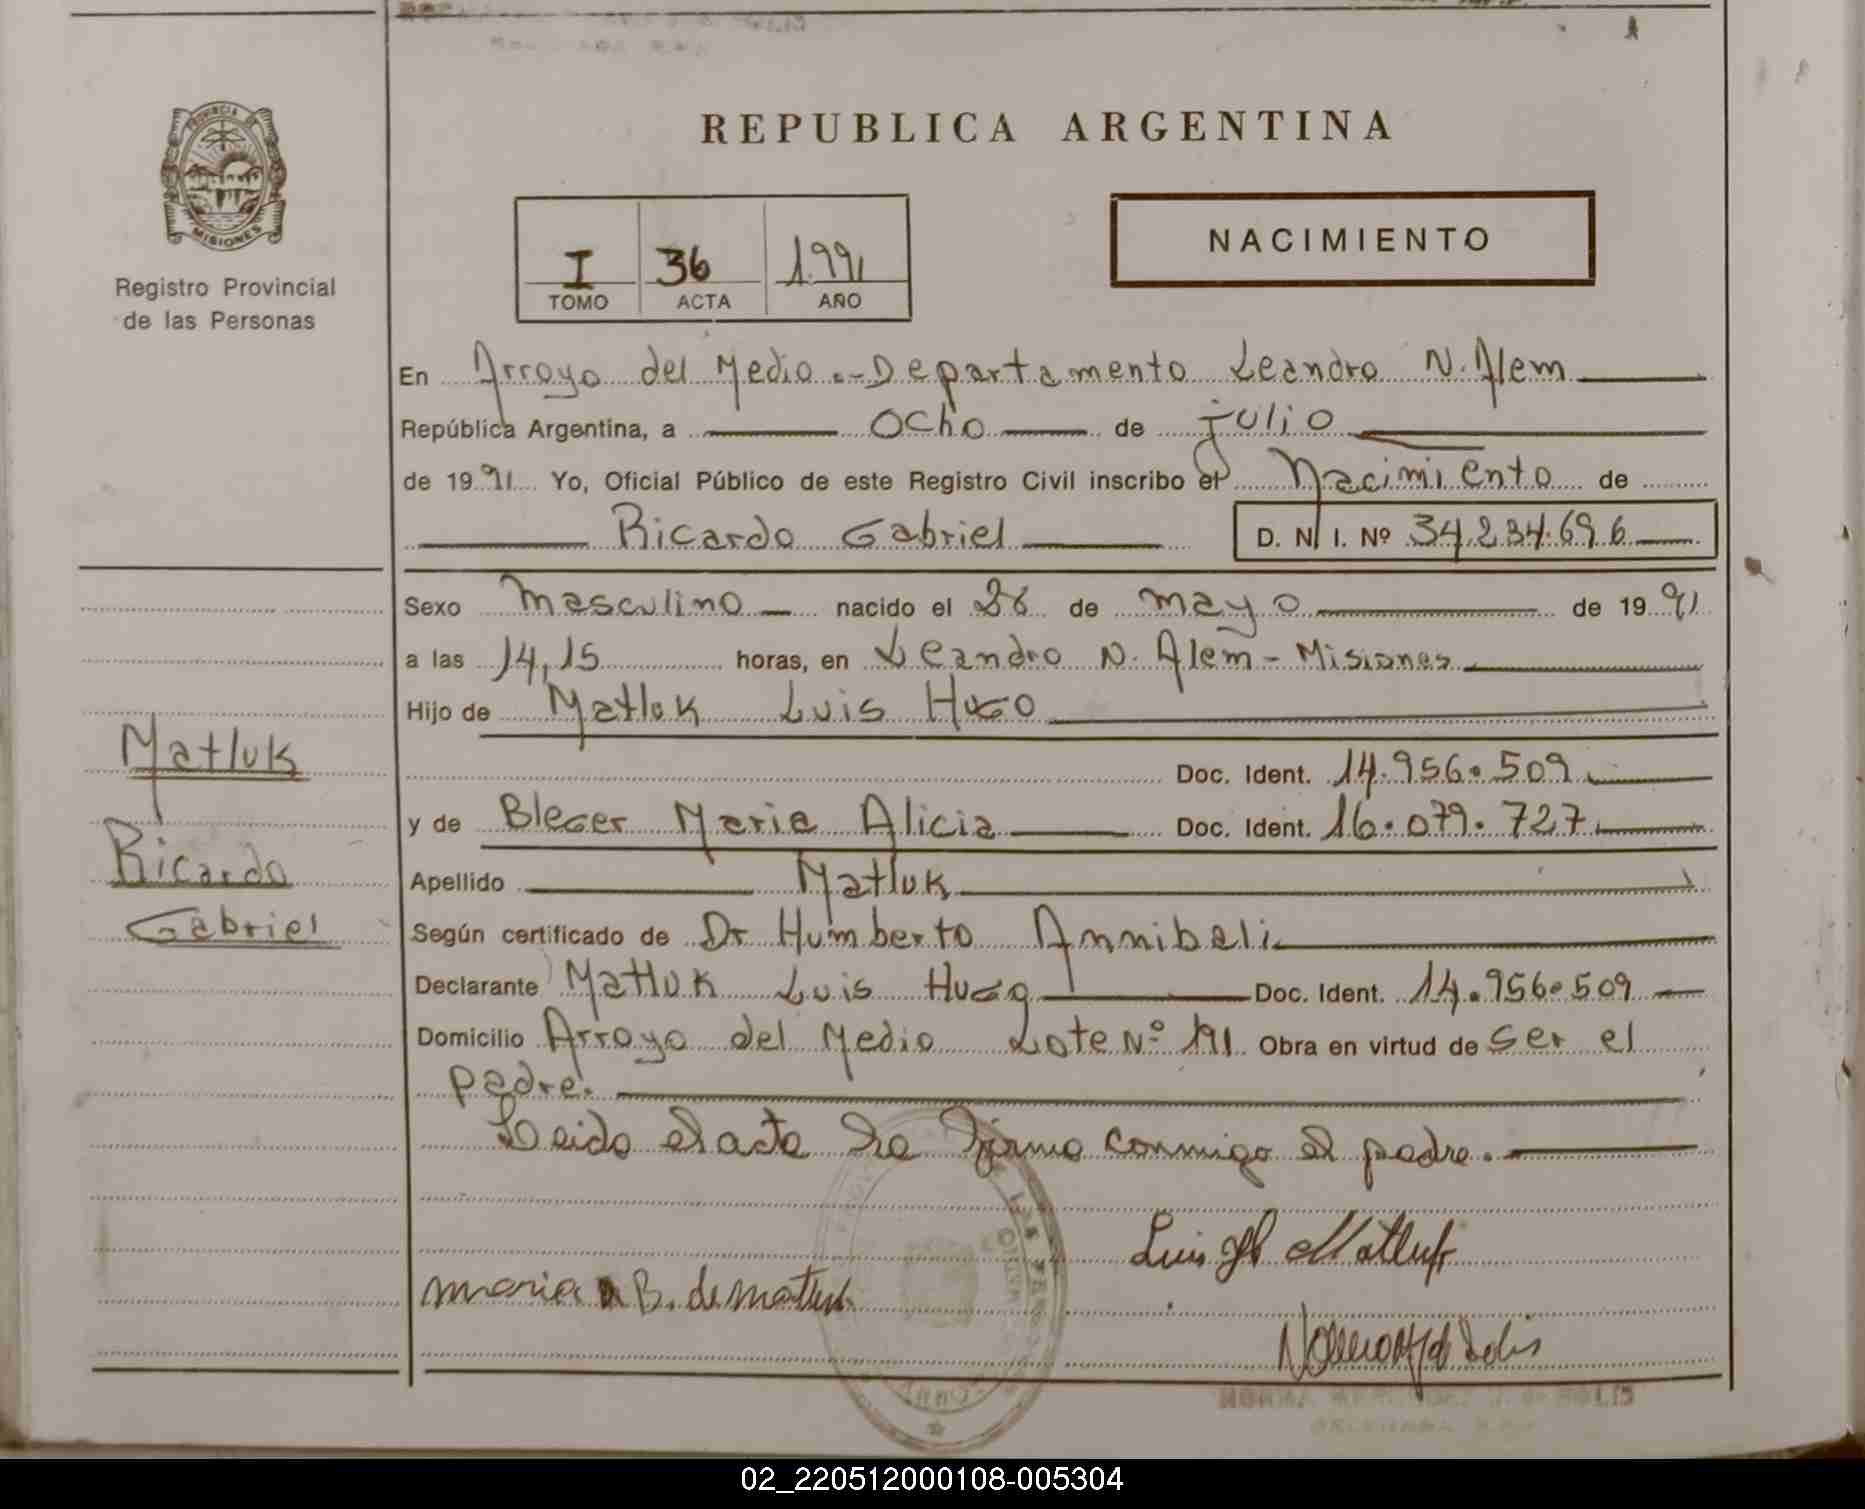 PROVINCIA DE MISIONES
Registro Provincial
de las Personas
REPUBLICA ARGENTINA
I 36 1.991
TOMO ACTA AÑO
NACIMIENTO
En Arroyo del Medio.-Departamento Leandro N. Alem
República Argentina, a ocho de julio
de 1991 Yo, Oficial Público de este Registro Civil inscribo el Nacimiento de
Ricardo Gabriel D. N. I. Nº 34.234.696
Sexo masculino nacido el 28 de mayo de 1991
a las 14,15 horas, en Leandro N. Alem - Misiones
Hijo de Matluk Luis Hugo
Doc. Ident. 14.956.509
y de Bleger Maria Alicia Doc. Ident. 16.079.727
Apellido Matluk
Según certificado de Dr Humberto Annibali
Declarante Matluk Luis Hugo Doc. Ident. 14.956.509
Domicilio Arroyo del Medio Lote Nº 191 Obra en virtud de ser el
padre.
Leida el acta la firma conmigo el padre.
Matluk
Ricardo
Gabriel
Luis H Matluk
Maria A B. de Matluk
NORMA SOLIS
02_220512000108-005304